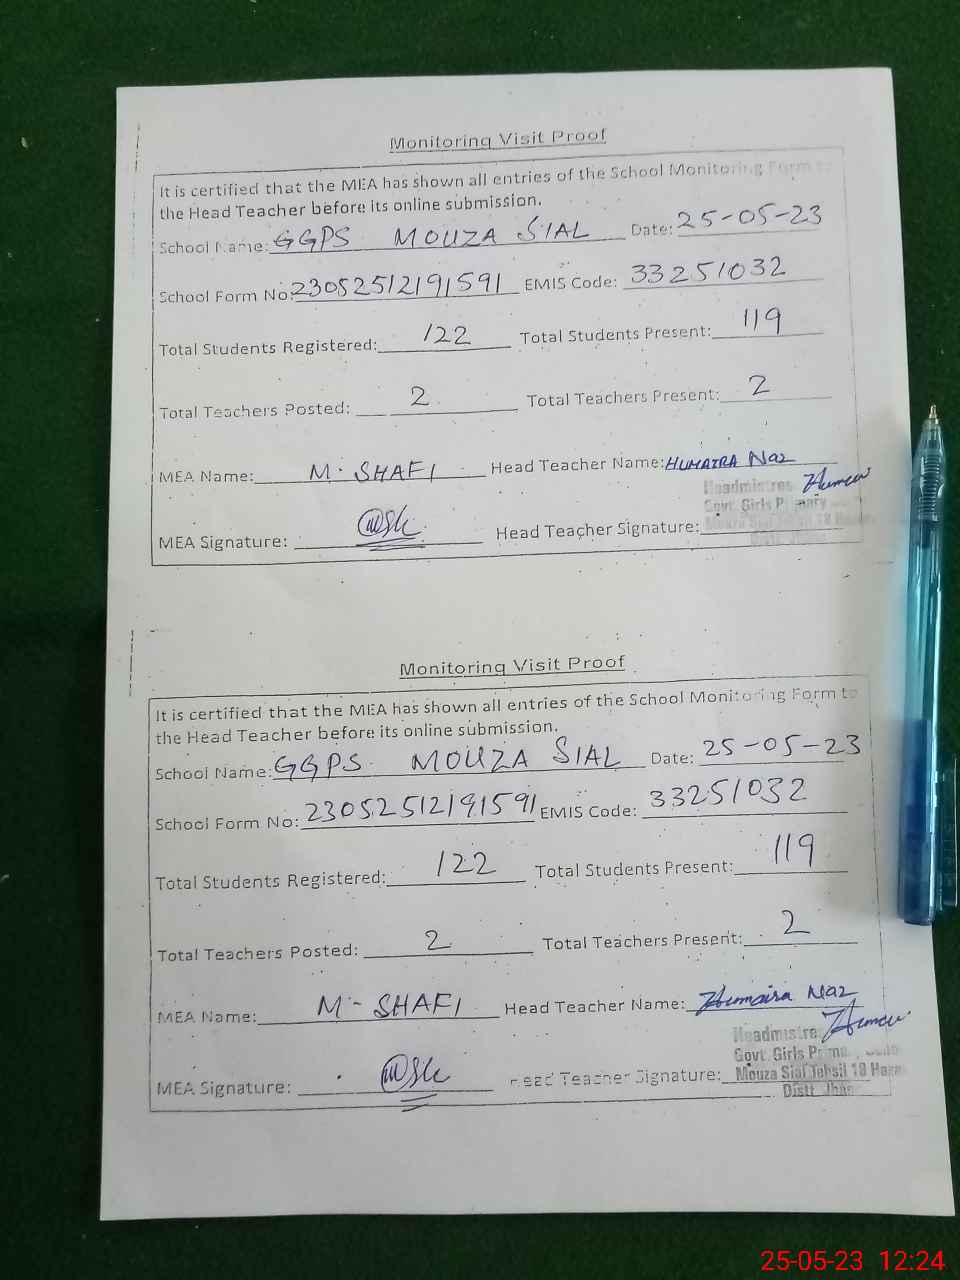 Monitoring Visit Proof
It is certified that the MEA has shown all entries of the School Monitoring Form to
the Head Teacher before its online submission.
School Name: GGPS MOUZA SIAL Date: 25-05-23
School Form No: 23052512191591 EMIS Code: 33251032
Total Students Registered: 122 Total Students Present: 119
Total Teachers Posted: 2 Total Teachers Present: 2
MEA Name: M. SHAFI Head Teacher Name: HUMAIRA Naz
Headmistres
Govt. Girls Primary
MEA Signature: Head Teacher Signature:
Mouza Sial Tehsil 18
Distt
Monitoring Visit Proof
It is certified that the MEA has shown all entries of the School Monitoring Form to
the Head Teacher before its online submission.
School Name: GGPS MOUZA SIAL Date: 25-05-23
School Form No: 23052512191591 EMIS Code: 33251032
Total Students Registered: 122 Total Students Present: 119
Total Teachers Posted: 2 Total Teachers Present: 2
MEA Name: M - SHAFI Head Teacher Name: Humaira Naz
Headmistre
Govt. Girls
MEA Signature: Head Teacher Signature: Mouza Sial Tehsil 18
Distt
25-05-23 12:24